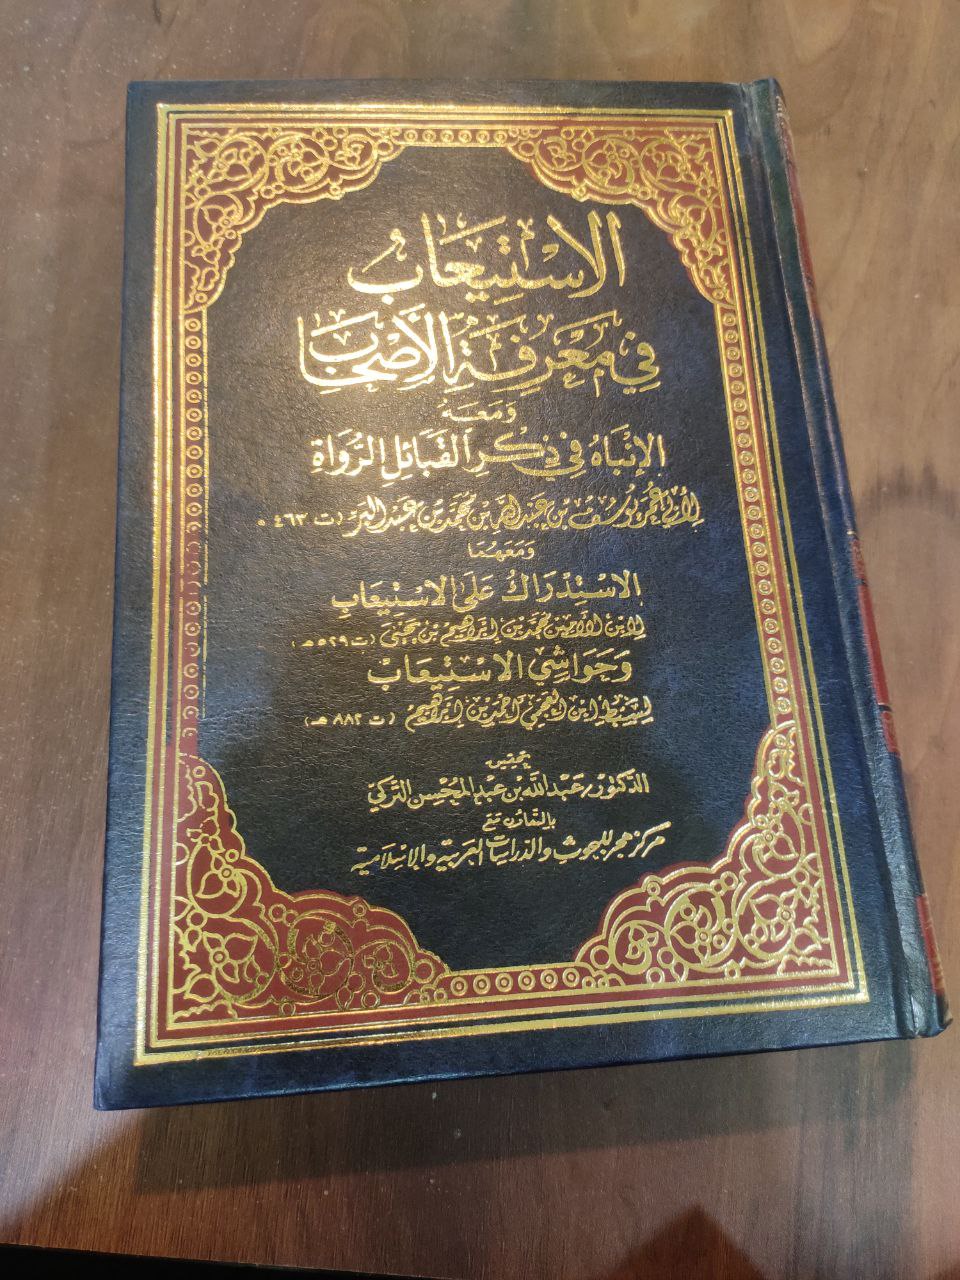 الاستيعاب
في معرفة الأصحاب
ومعه
الإنباه في ذكر القبائل الرواة
لأبي عمر يوسف بن عبد الله بن محمد بن عبد البر (ت ٤٦٣ ه
ومعهما
الاستدراك على الاستيعاب
لابن الأمين محمد بن إبراهيم بن يحيى (ت ٥٢٩ هـ)
وحواشي الاستيعاب
لسبط ابن العجمي أحمد بن إبراهيم (ت ٨٨٢ هـ)
تحقيق
الدكتور/ عبد الله بن عبد المحسن التركي
بالتعاون مع
مركز هجر للبحوث والدراسات العربية والإسلامية